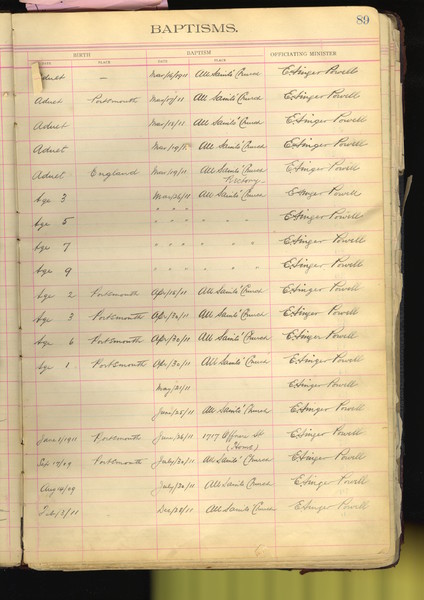 89
BAPTISMS.
BIRTH BAPTISM OFFICIATING MINISTER
DATE PLACE DATE PLACE
Adult — Mar/16/1911 All Saints' Church E. Singer Powell
Adult Portsmouth Mar/17/11 All Saints' Church E. Singer Powell
Adult Mar/12/11 All Saints' Church E. Singer Powell
Adult Mar/19/11 All Saints' Church E. Singer Powell
Adult England Mar/19/11 All Saints' Church E. Singer Powell
Rectory
Age 3 Mar/26/11 All Saints' Church E. Singer Powell
Age 5 " " " " " " E. Singer Powell
Age 7 " " " " " " E. Singer Powell
Age 9 " " " " " " E. Singer Powell
Age 2 Portsmouth Apr/16/11 All Saints' Church E. Singer Powell
Age 3 Portsmouth Apr/30/11 All Saints' Church E. Singer Powell
Age 6 Portsmouth Apr/30/11 All Saints' Church E. Singer Powell
Age 1 Portsmouth Apr/30/11 All Saints' Church E. Singer Powell
May/21/11 E. Singer Powell
June/25/11 All Saints' Church E. Singer Powell
June 1/1911 Portsmouth June/26/11 1717 St E. Singer Powell
(Home)
Sep 17/09 Portsmouth July/30/11 All Saints' Church E. Singer Powell
Aug 14/09 July/30/11 All Saints' Church E. Singer Powell
Feb/3/11 Dec/28/11 All Saints' Church E. Singer Powell